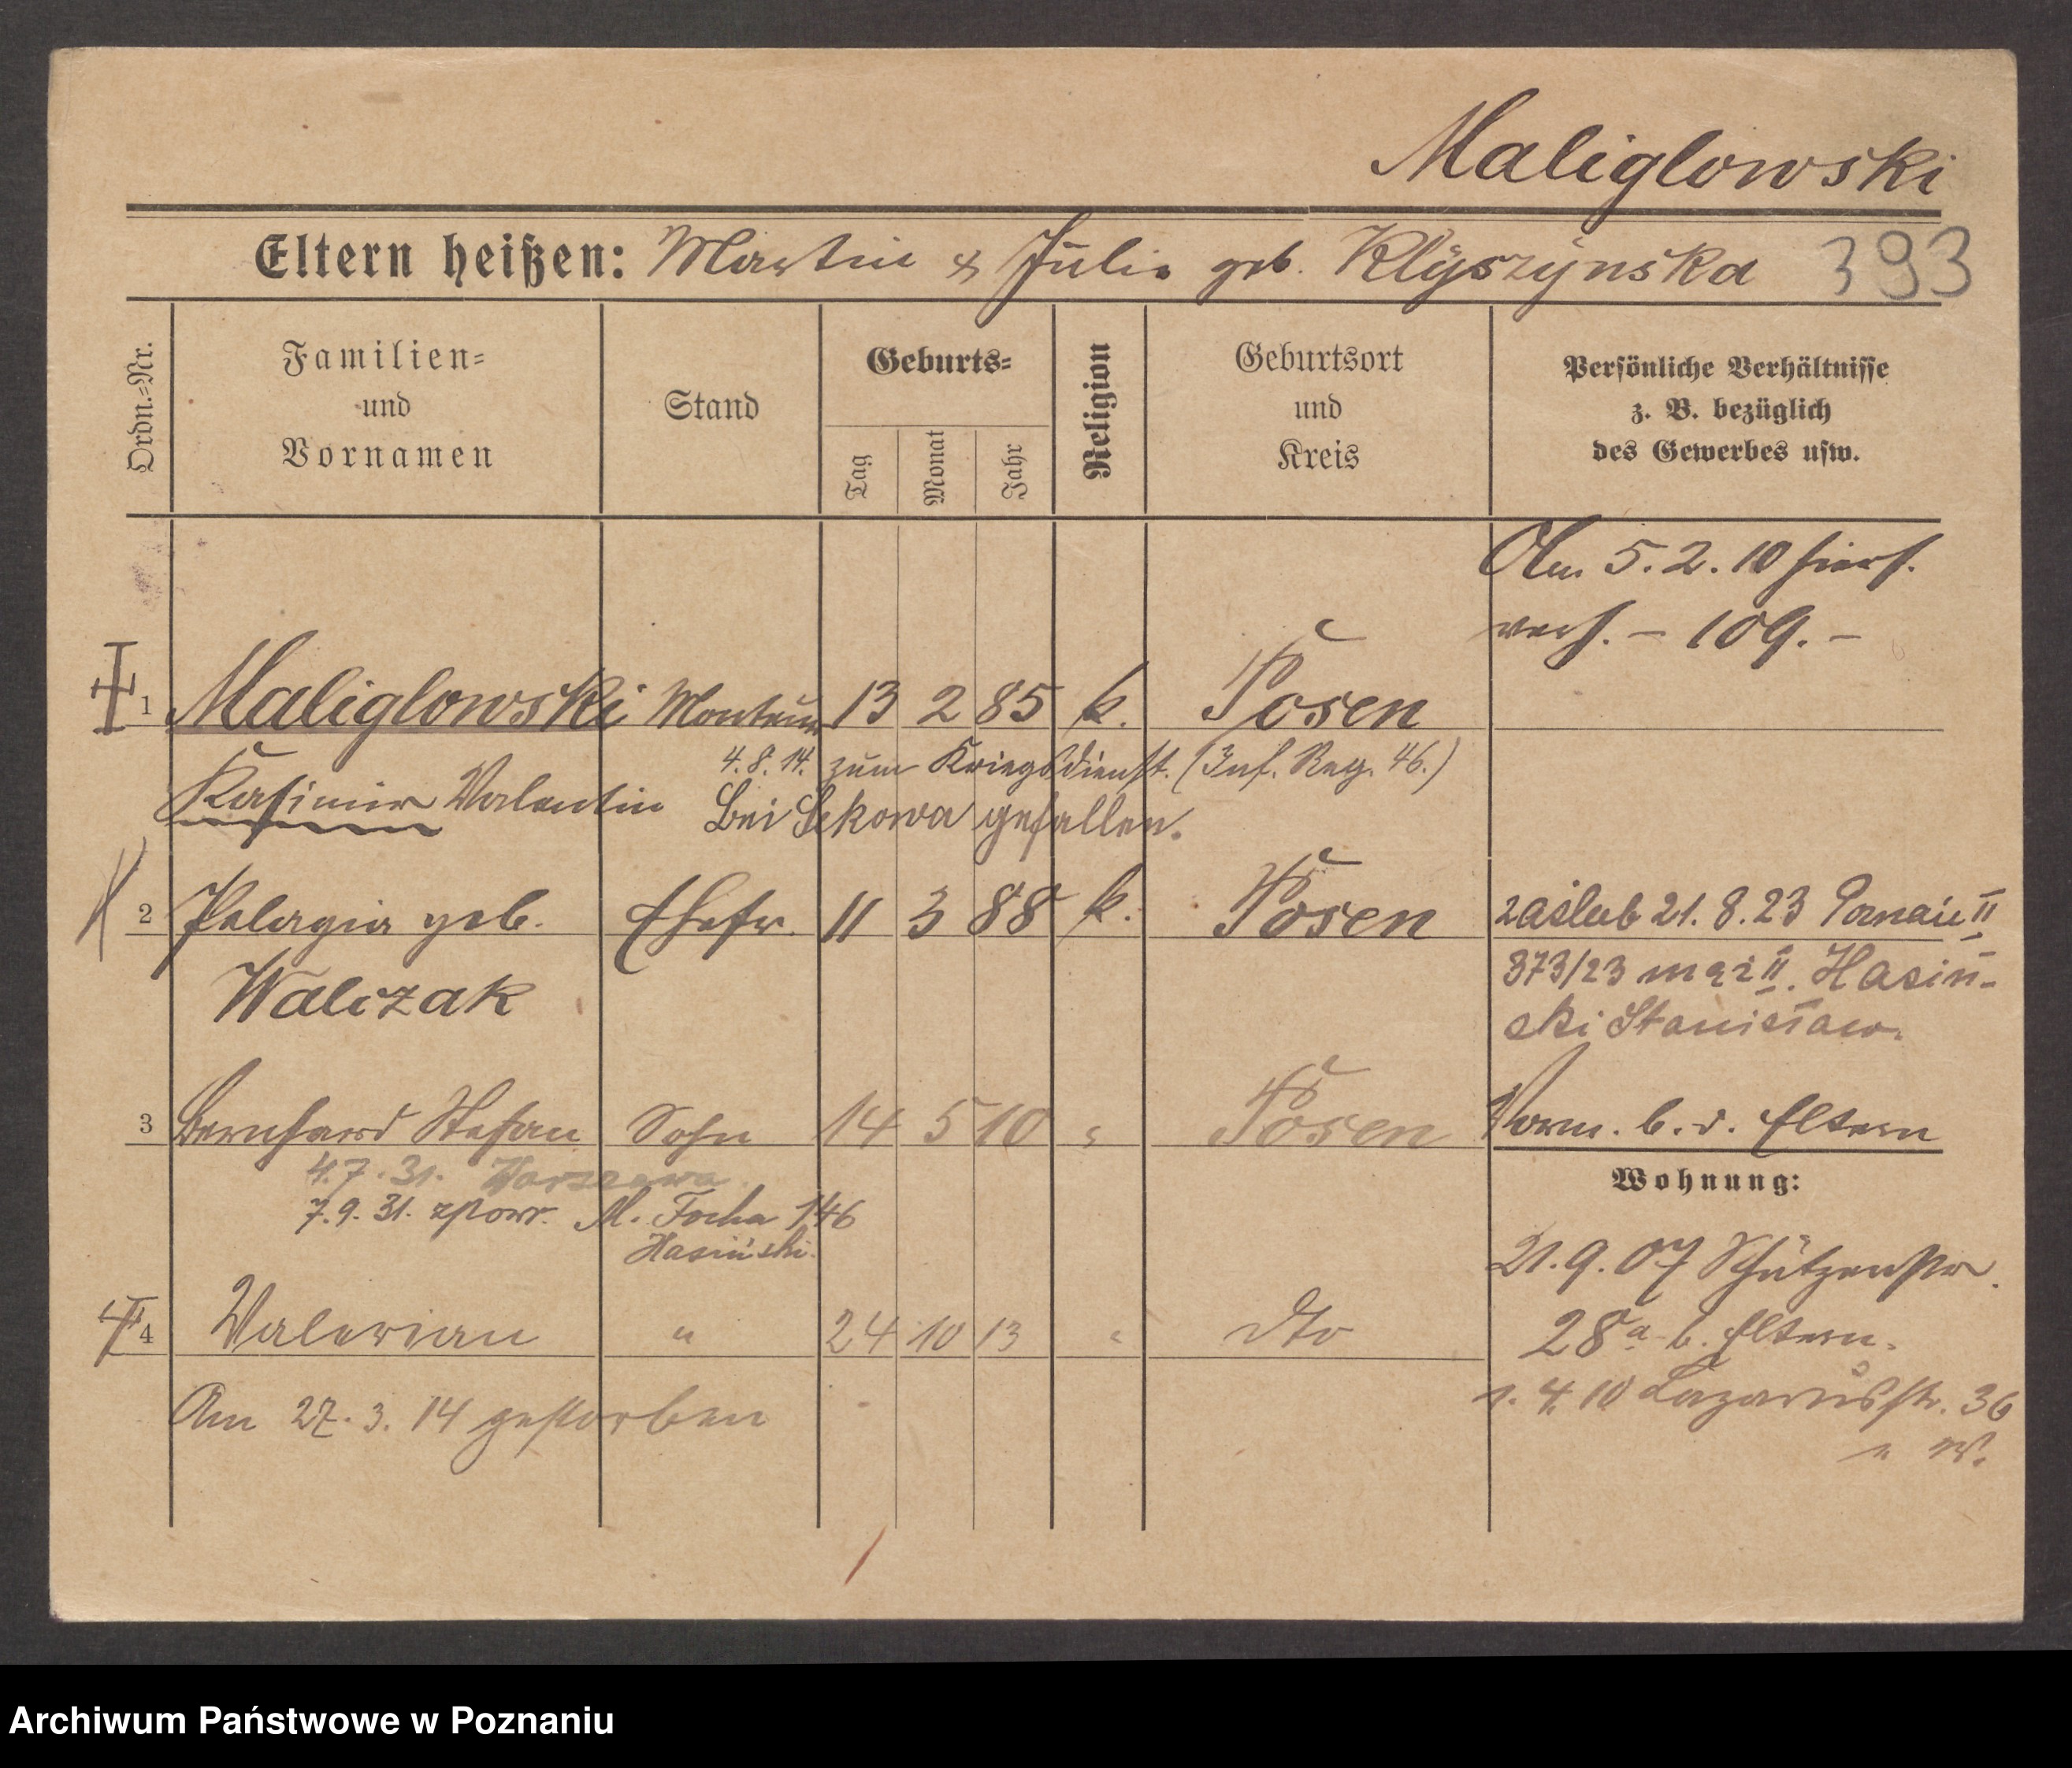 Maliglowski
Eltern heißen: Martin & Julia geb. Klyszynska 393
Ordn.-Nr.
Familien-
und
Vornamen
Stand
Geburts-
Tag
Monat
Jahr
Religion
Geburtsort
und
Kreis
Persönliche Verhältnisse
z. B. bezüglich
des Gewerbes usw.
Am 5.2.10 hiers.
verh. – 109. –
1 Maliglowski Monteur 13 2 85 k. Posen
4.8.14. zum Kriegsdienst. (Inf. Reg. 46.)
Kasimir Valentin
Bei Sekowa gefallen.
2 Pelagia geb. Ehefr. 11 3 88 k. Posen zaślub 21.8.23 Poznań II
Walczak
373/23 mąż II. Hasiń-
ski Stanisław.
3 Bernhard Stefan Sohn 14 5 10 " Posen Vorm. b. d. Eltern
4.7.31. Warszawa
7.9.31. zpowr. M. Focha 146
Hasiński.
Wohnung:
21.9.07 Schützenstr.
4 Valerian " 24 10 13 " dto 28a b. Eltern.
1.4.10 Lazarusstr. 36
Am 27.3.14 gestorben
Archiwum Państwowe w Poznaniu